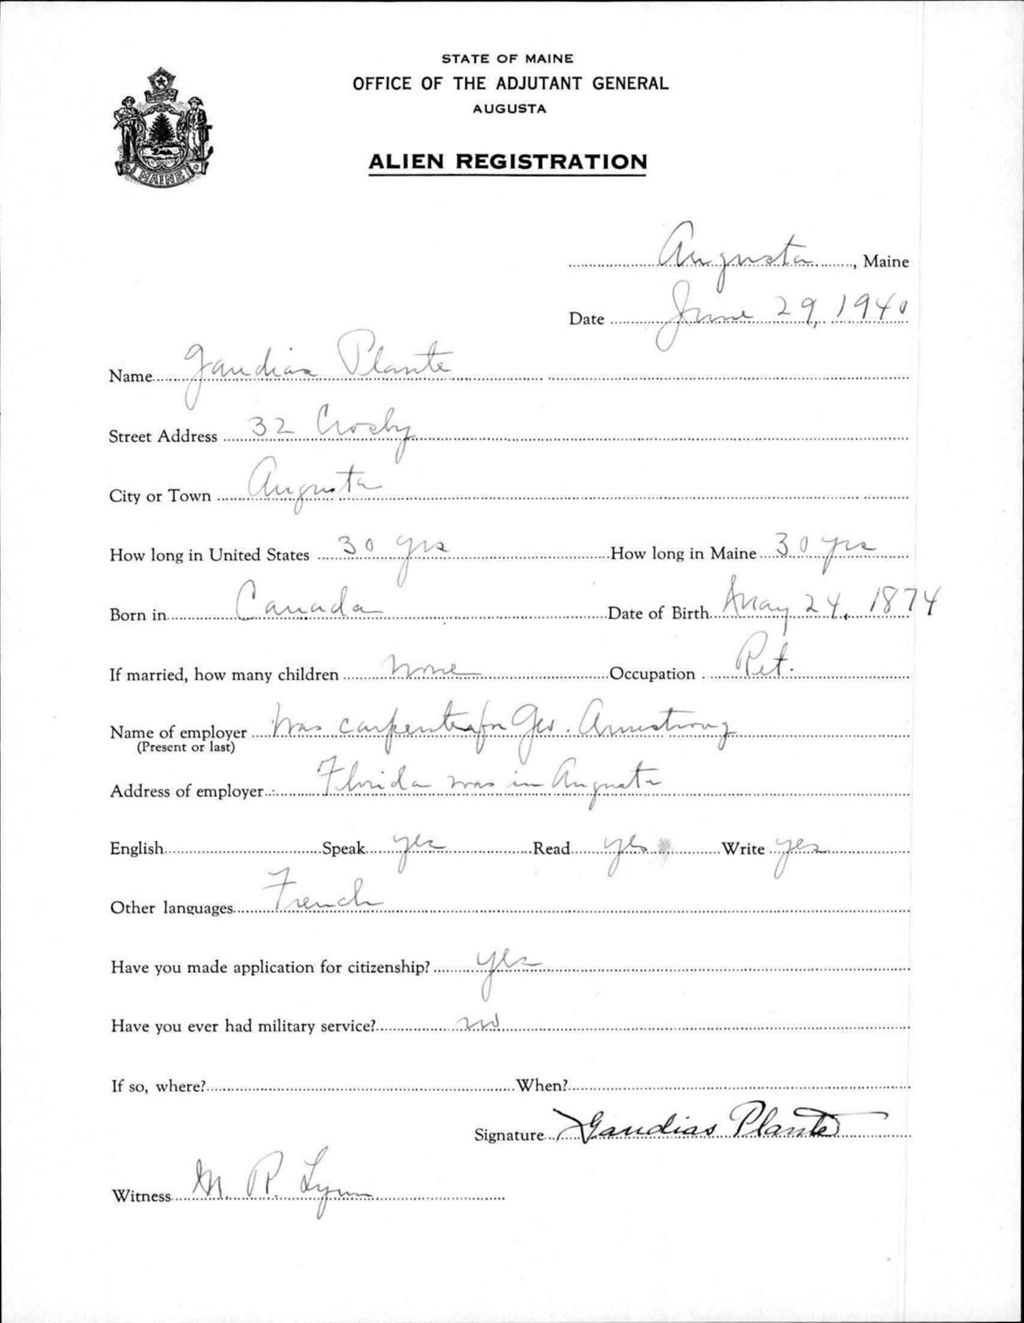 STATE OF MAINE
OFFICE OF THE ADJUTANT GENERAL
AUGUSTA
ALIEN REGISTRATION
Augusta, Maine
Date June 29, 1940
Name Gaudias Plante
Street Address 32 Crosby
City or Town Augusta
How long in United States 30 yrs How long in Maine 30 yrs
Born in Canada Date of Birth May 24, 1874
If married, how many children none Occupation Ret.
Name of employer Was carpenter for Geo. Armstrong
(Present or last)
Address of employer Florida was in Augusta
English Speak yes Read yes Write yes
Other languages French
Have you made application for citizenship? yes
Have you ever had military service? no
If so, where? When?
Signature Gaudias Plante
Witness M. P. Lynn
MAINE